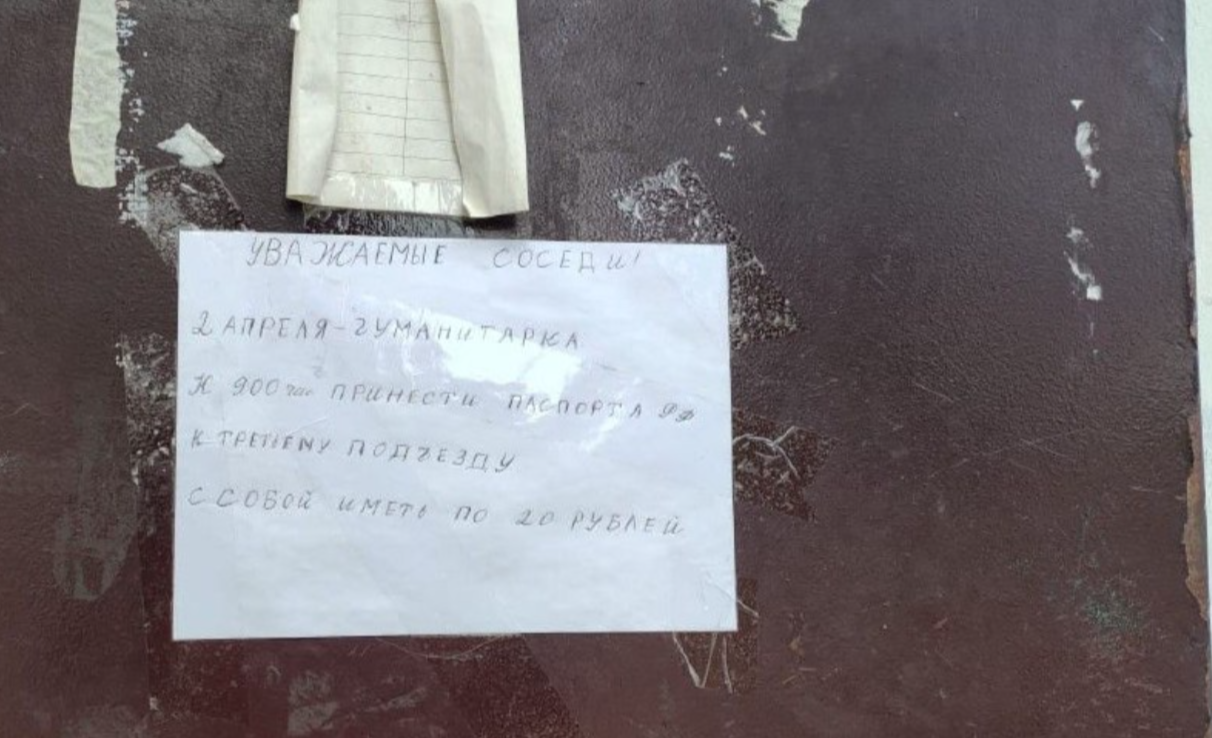 УВАЖАЕМЫЕ СОСЕДИ!
2 АПРЕЛЯ - ГУМАНИТАРКА
К 900 час ПРИНЕСТИ ПАСПОРТА РФ
К ТРЕТЬЕМУ ПОДЪЕЗДУ
С СОБОЙ ИМЕТЬ ПО 20 РУБЛЕЙ